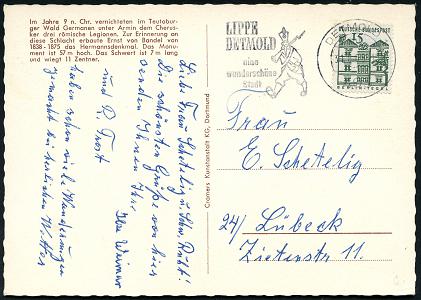 Im Jahre 9 n. Chr. vernichteten im Teutobur-
ger Wald Germanen unter Armin dem Cherus-
ker drei römische Legionen. Zur Erinnerung an
diese Schlacht erbaute Ernst von Bandel von
1838-1875 das Hermannsdenkmal. Das Monu-
ment ist 57 m hoch. Das Schwert ist 7 m lang
und wiegt 11 Zentner.
LIPPE
DETMOLD
eine
wunderschöne
Stadt
DETMOLD
DEUTSCHE BUNDESPOST
BERLIN-TEGEL
Liebe Frau Schetelig u.
Die schönsten Grüße von hier
senden Ihnen Ihre
Ilse
und P. Trost
haben schon viele Wanderungen
gemacht bei herrlichem Wetter
Cramers Kunstanstalt KG, Dortmund
Frau
E. Schetelig
24/ Lübeck
Zietenstr. 11.